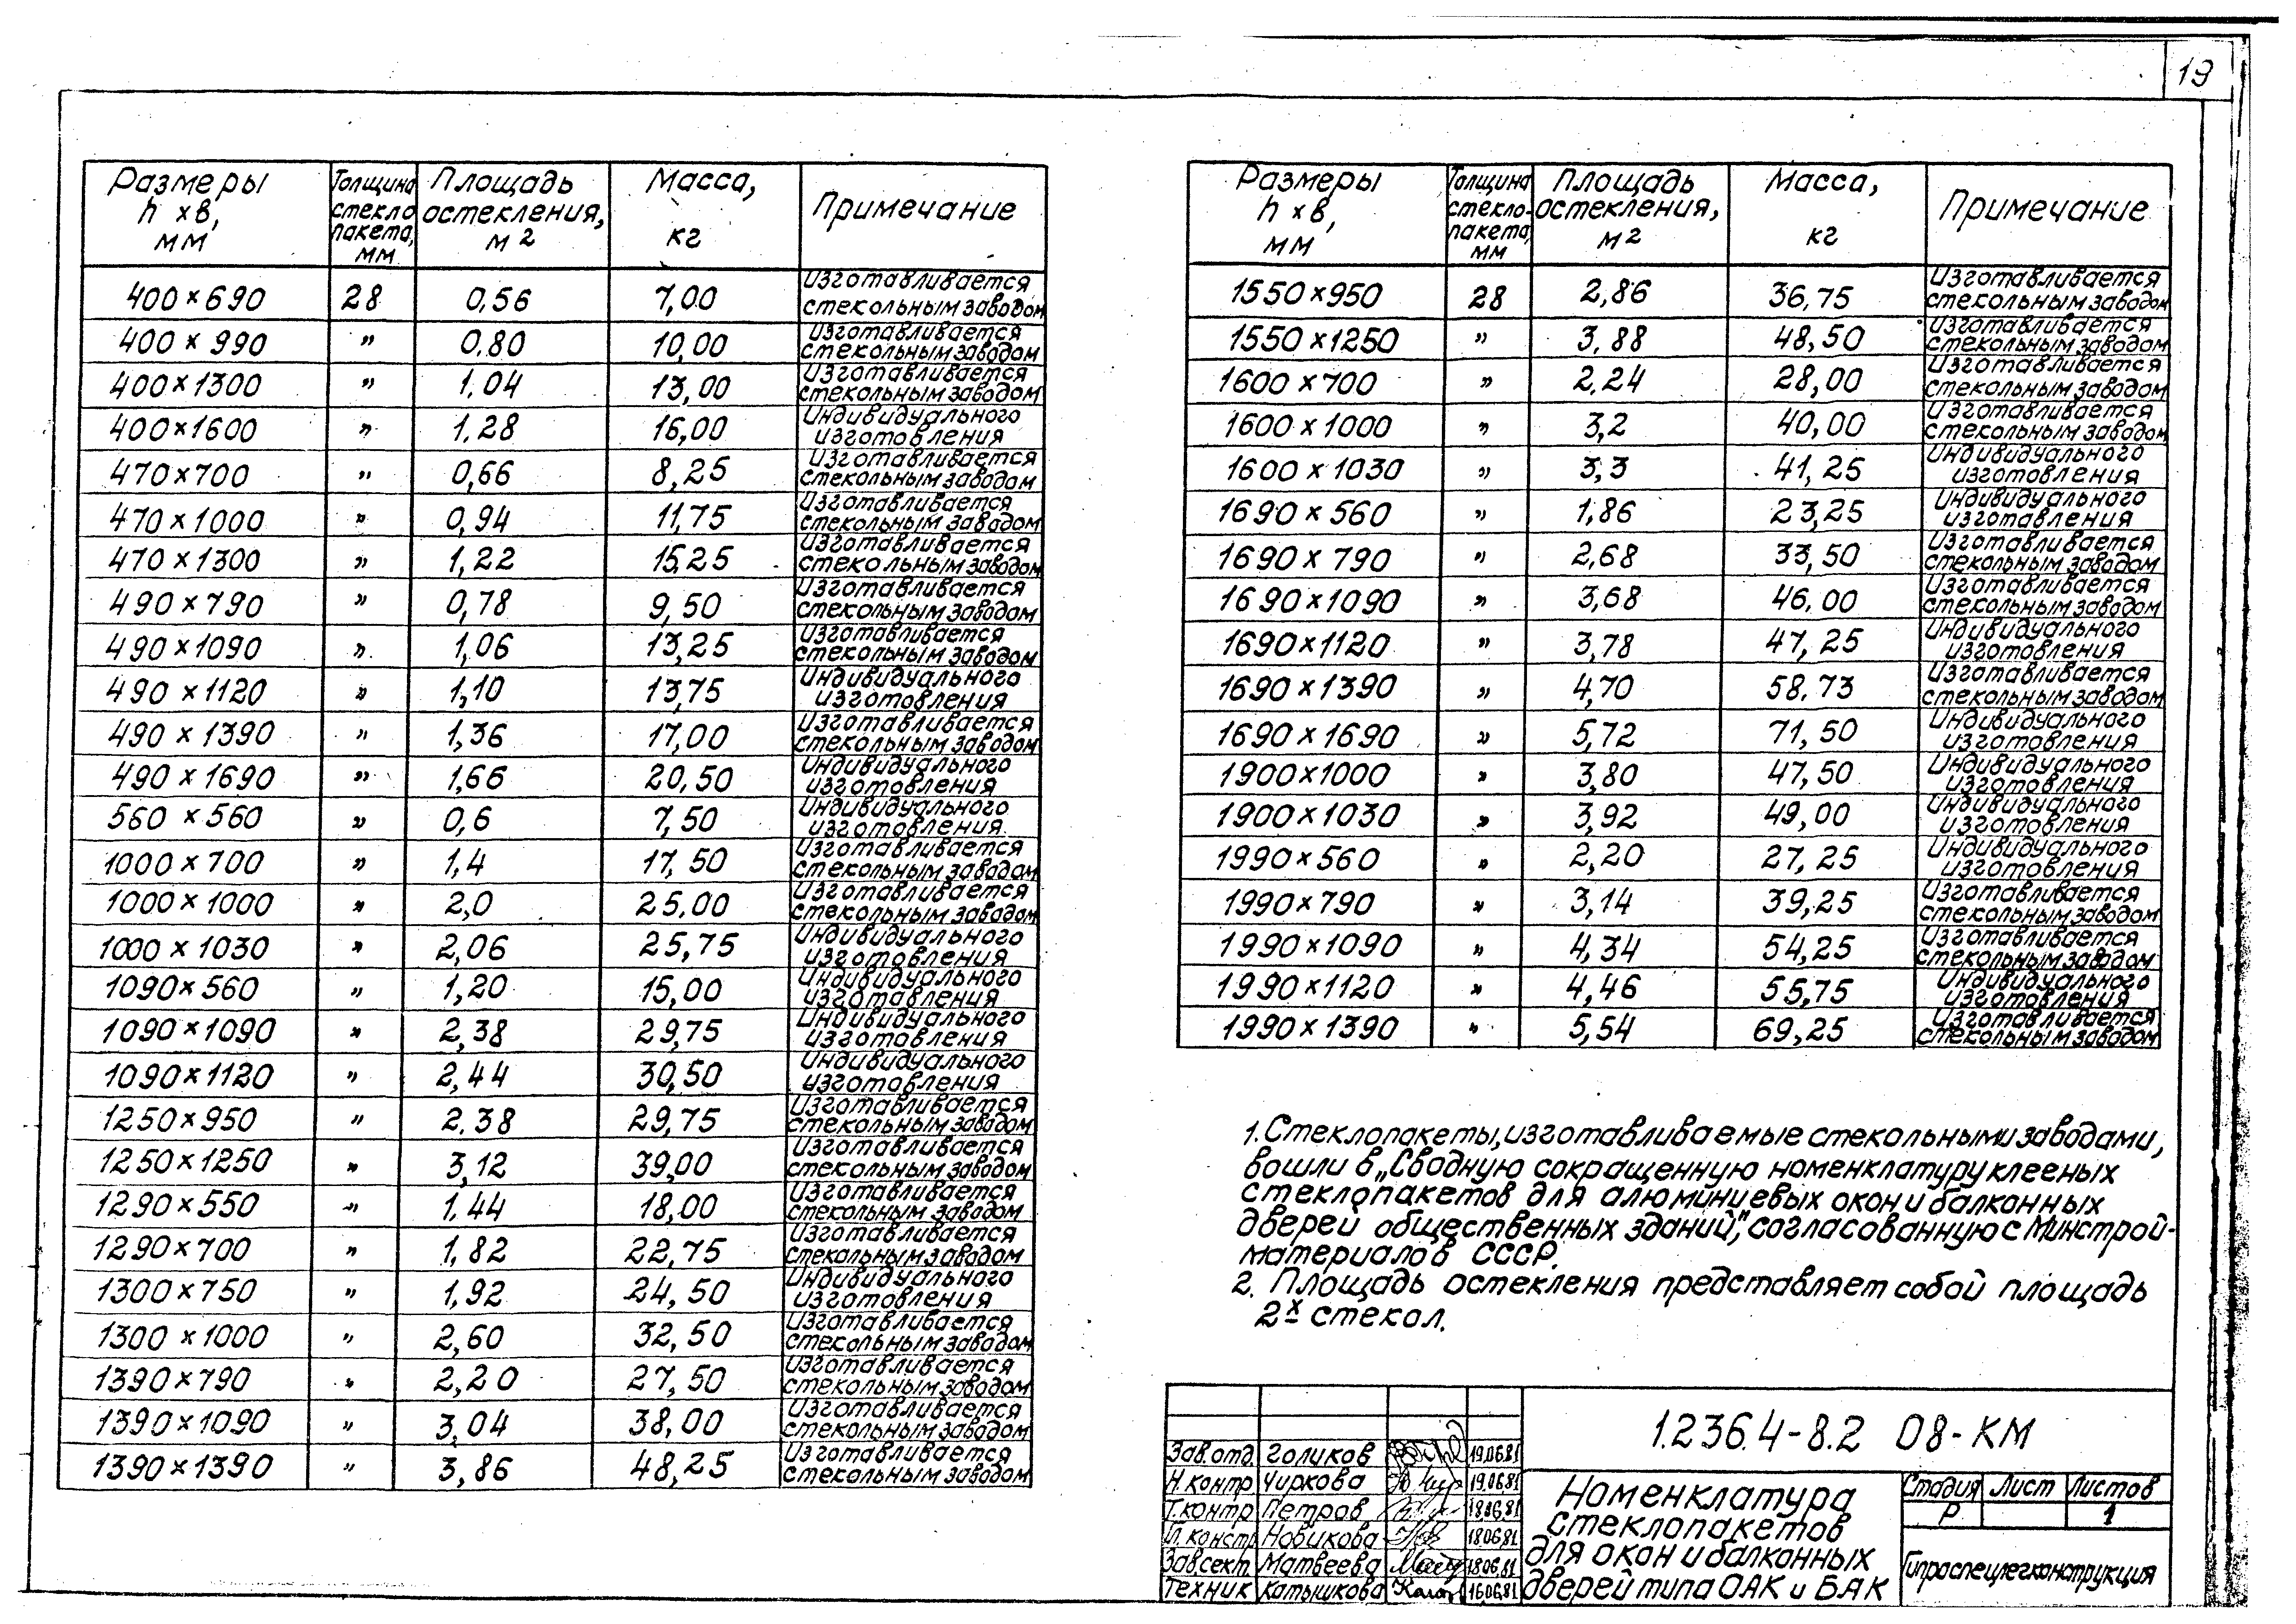 19
Размеры h х в, мм | Толщина стекло пакета, мм | Площадь остекления, м2 | Масса, кг | Примечание
400 × 690 | 28 | 0,56 | 7,00 | Изготавливается стекольным заводом
400 × 990 | " | 0,80 | 10,00 | Изготавливается стекольным заводом
400 × 1300 | " | 1,04 | 13,00 | Изготавливается стекольным заводом
400 × 1600 | " | 1,28 | 16,00 | Индивидуального изготовления
470 × 700 | " | 0,66 | 8,25 | Изготавливается стекольным заводом
470 × 1000 | " | 0,94 | 11,75 | Изготавливается стекольным заводом
470 × 1300 | " | 1,22 | 15,25 | Изготавливается стекольным заводом
490 × 790 | " | 0,78 | 9,50 | Изготавливается стекольным заводом
490 × 1090 | " | 1,06 | 13,25 | Изготавливается стекольным заводом
490 × 1120 | " | 1,10 | 13,75 | Индивидуального изготовления
490 × 1390 | " | 1,36 | 17,00 | Изготавливается стекольным заводом
490 × 1690 | " | 1,66 | 20,50 | Индивидуального изготовления
560 × 560 | " | 0,6 | 7,50 | Индивидуального изготовления
1000 × 700 | " | 1,4 | 17,50 | Изготавливается стекольным заводом
1000 × 1000 | " | 2,0 | 25,00 | Изготавливается стекольным заводом
1000 × 1030 | " | 2,06 | 25,75 | Индивидуального изготовления
1090 × 560 | " | 1,20 | 15,00 | Индивидуального изготовления
1090 × 1090 | " | 2,38 | 29,75 | Индивидуального изготовления
1090 × 1120 | " | 2,44 | 30,50 | Индивидуального изготовления
1250 × 950 | " | 2,38 | 29,75 | Изготавливается стекольным заводом
1250 × 1250 | " | 3,12 | 39,00 | Изготавливается стекольным заводом
1290 × 550 | " | 1,44 | 18,00 | Изготавливается стекольным заводом
1290 × 700 | " | 1,82 | 22,75 | Изготавливается стекольным заводом
1300 × 750 | " | 1,92 | 24,50 | Индивидуального изготовления
1300 × 1000 | " | 2,60 | 32,50 | Изготавливается стекольным заводом
1390 × 790 | " | 2,20 | 27,50 | Изготавливается стекольным заводом
1390 × 1090 | " | 3,04 | 38,00 | Изготавливается стекольным заводом
1390 × 1390 | " | 3,86 | 48,25 | Изготавливается стекольным заводом
Размеры h х в, мм | Толщина стекло- пакета, мм | Площадь остекления, м2 | Масса, кг | Примечание
1550 × 950 | 28 | 2,86 | 36,75 | Изготавливается стекольным заводом
1550 × 1250 | " | 3,88 | 48,50 | Изготавливается стекольным заводом
1600 × 700 | " | 2,24 | 28,00 | Изготавливается стекольным заводом
1600 × 1000 | " | 3,2 | 40,00 | Изготавливается стекольным заводом
1600 × 1030 | " | 3,3 | 41,25 | Индивидуального изготовления
1690 × 560 | " | 1,86 | 23,25 | Индивидуального изготовления
1690 × 790 | " | 2,68 | 33,50 | Изготавливается стекольным заводом
1690 × 1090 | " | 3,68 | 46,00 | Изготавливается стекольным заводом
1690 × 1120 | " | 3,78 | 47,25 | Индивидуального изготовления
1690 × 1390 | " | 4,70 | 58,73 | Изготавливается стекольным заводом
1690 × 1690 | " | 5,72 | 71,50 | Индивидуального изготовления
1900 × 1000 | " | 3,80 | 47,50 | Индивидуального изготовления
1900 × 1030 | " | 3,92 | 49,00 | Индивидуального изготовления
1990 × 560 | " | 2,20 | 27,25 | Индивидуального изготовления
1990 × 790 | " | 3,14 | 39,25 | Изготавливается стекольным заводом
1990 × 1090 | " | 4,34 | 54,25 | Изготавливается стекольным заводом
1990 × 1120 | " | 4,46 | 55,75 | Индивидуального изготовления
1990 × 1390 | " | 5,54 | 69,25 | Изготавливается стекольным заводом
1. Стеклопакеты, изготавливаемые стекольными заводами,
вошли в „Сводную сокращенную номенклатуру клееных
стеклопакетов для алюминиевых окон и балконных
дверей общественных зданий", согласованную с Минстрой-
материалов СССР.
2. Площадь остекления представляет собой площадь
2х стекол.
1.236.4-8.2 08-КМ
Зав.отд. Голиков 19.06.81
Н.контр Чиркова 19.06.81
Т.контр Петров 18.06.81
Гл.констр Новикова 18.06.81
Зав.сект. Матвеева 18.06.81
Техник Катышкова 16.06.81
Номенклатура
стеклопакетов
для окон и балконных
дверей типа ОАК и БАК
Стадия Лист Листов
Р 1
Гипроспецлегконструкция